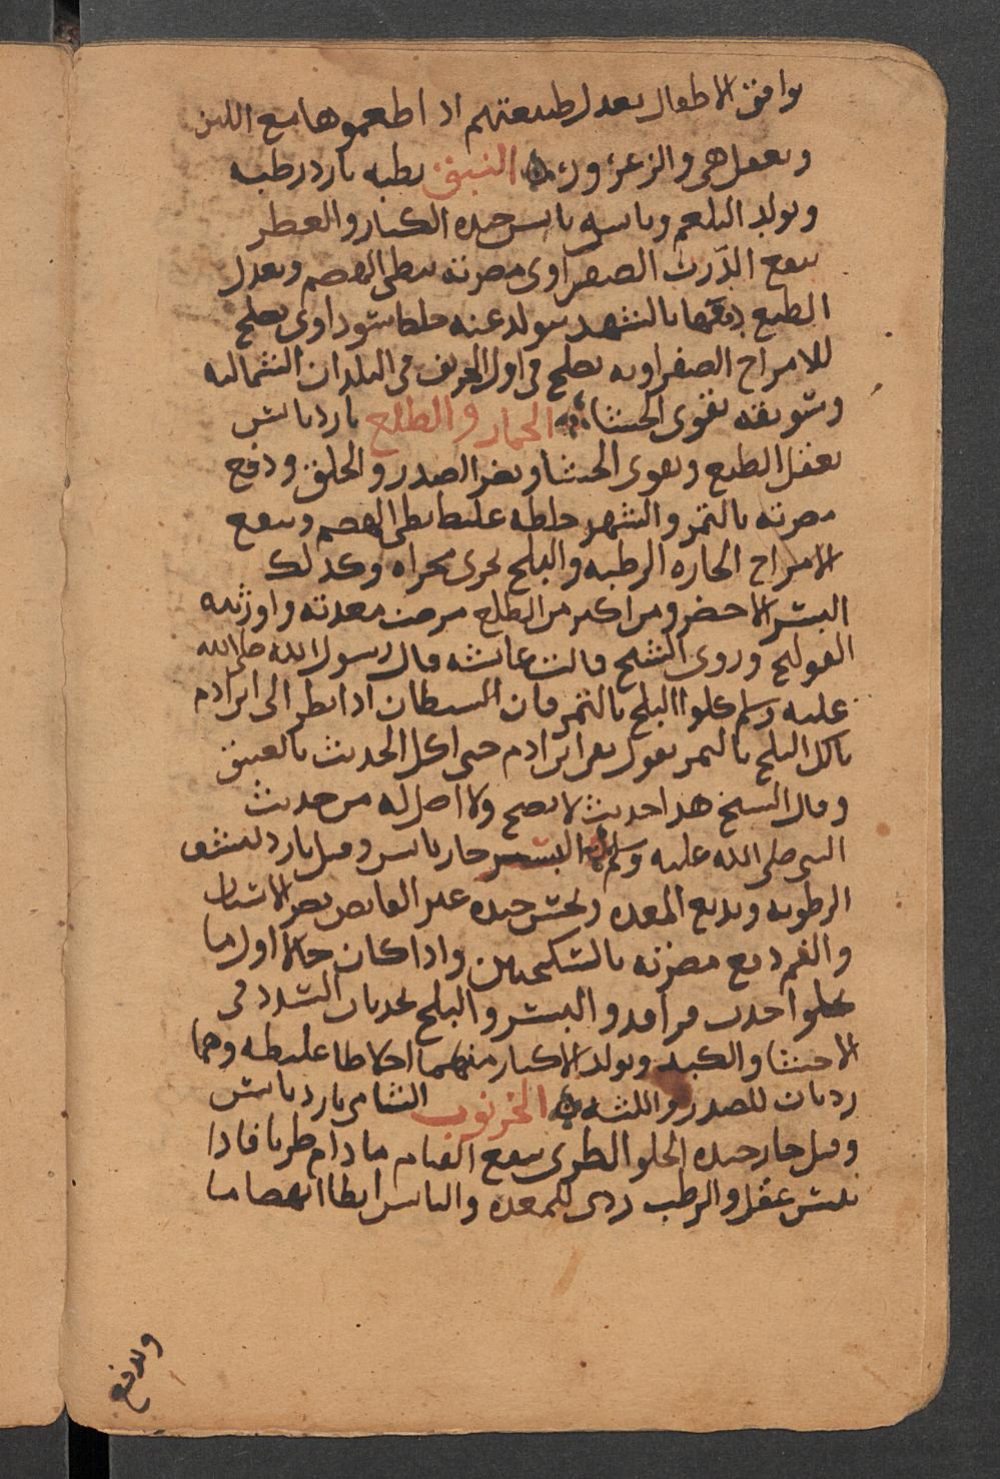 يوافق الاطفال يعدل طبيعتهم اذا اطعموها مع اللبن
ويعقل هى والزعرور النبق رطبه بارد رطب
ويولد البلغم ويابسه يابس جيده الكبار والعطر
ينفع الذرب الصفراوى مضرته بطى الهضم ويعدل
الطبع دفعها بالشهد يتولد عنه خلطا سوداوى يصلح
للامزاج الصفراويه يصلح فى اول الخريف فى البلدان الشماليه
وسويقه يقوى الحشا الجمار والطلع بارد يابس
يعقل الطبع ويقوى الحشا ويضر الصدر والحلق ودفع
مضرته بالتمر والشهد خلطه غليظ بطى الهضم وينفع
الامزاج الحاره الرطبه والبلح يجرى مجراه وكذلك
البسر الاخضر ومن اكثر من الطلع مرضت معدته واورثته
القولنج وروى الشيخ قالت عائشه قال رسول الله صلى الله
عليه وسلم كلوا البلح بالتمر فان الشيطان اذا نظر الى ابن ادم
ياكل البلح بالتمر يقول بقى ابن ادم حتى اكل الحديث بالعتيق
وقال الشيخ هذا حديث لا يصح ولا اصل له من حديث
النبى صلى الله عليه وسلم البسر حار يابس وقيل بارد ينشف
الرطوبه ويدبغ المعده ويحبس جيده غير القابض يضر الاسنان
والفم دفع مضرته بالسكنجبين واذا كان خلالا اول ما
يحلوا احدث قراقر والبسر والبلح يحدثان السدد فى
الاحشا والكبد ويولد الاكثار منهما اخلاطا غليظه وهما
رديان للصدر واللثه الخرنوب الشامى بارد يابس
وقيل حار جيده الحلو الطرى ينفع القيام ما دام طريا فاذا
يبس عقل والرطب ردى للمعده واليابس ابطا انهضاما
ويدفع